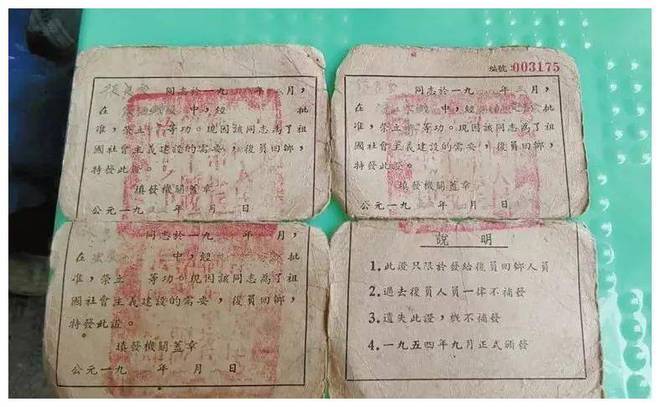 同志於一九 年 月，
在 中，經 批
准，榮立 等功。現因該同志為了祖
國社會主義建設的需要，復員回鄉，
特發此證。
填發機關蓋章
公元一九 年 月 日
編號：003175
同志於一九 年 月，
在 中，經 批
准，榮立 等功。現因該同志為了祖
國社會主義建設的需要，復員回鄉，
特發此證。
填發機關蓋章
公元一九 年 月 日
同志於一九 年 月，
在 中，經 批
准，榮立 等功。現因該同志為了祖
國社會主義建設的需要，復員回鄉，
特發此證。
填發機關蓋章
公元一九 年 月 日
說 明
1. 此證只限於發給復員回鄉人員
2. 過去復員人員一律不補發
3. 遺失此證，概不補發
4. 一九五四年九月正式頒發